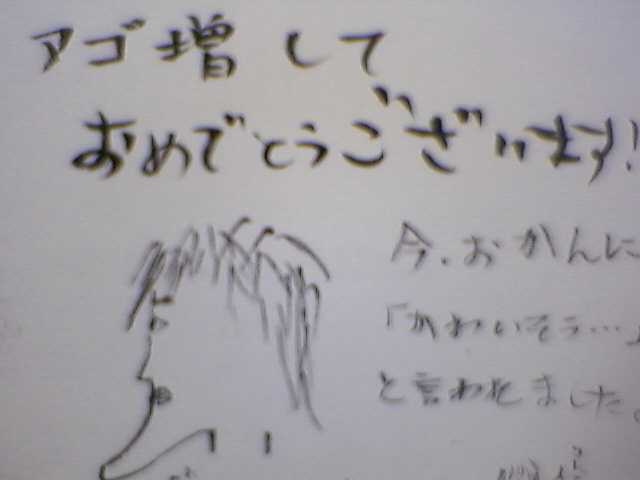 アゴ増して
おめでとうございます!
今、おかんに
「かわいそう…」
と言われました。